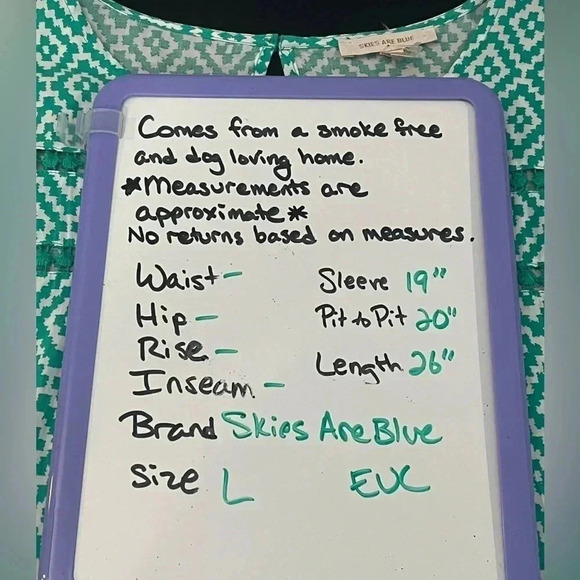 SKIES ARE BLUE
Comes from a smoke free
and dog loving home.
*Measurements are
approximate*
No returns based on measures.
Waist - Sleeve 19"
Hip - Pit to Pit 20"
Rise -
Length 26"
Inseam -
Brand Skies Are Blue
Size L EUC